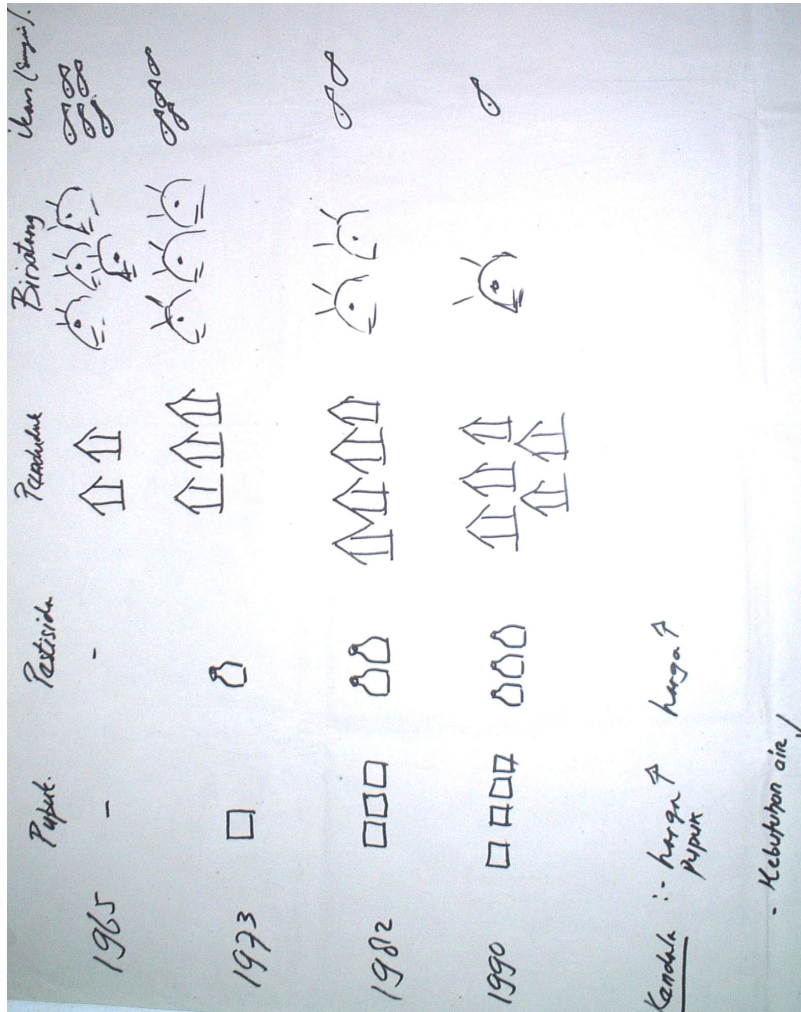 Pupuk. Pestisida Penduduk Binatang ikan (sungai).
1965 - -
1973
1982
1990
Kendala : - harga ↑ harga ↑
pupuk
- Kebutuhan air